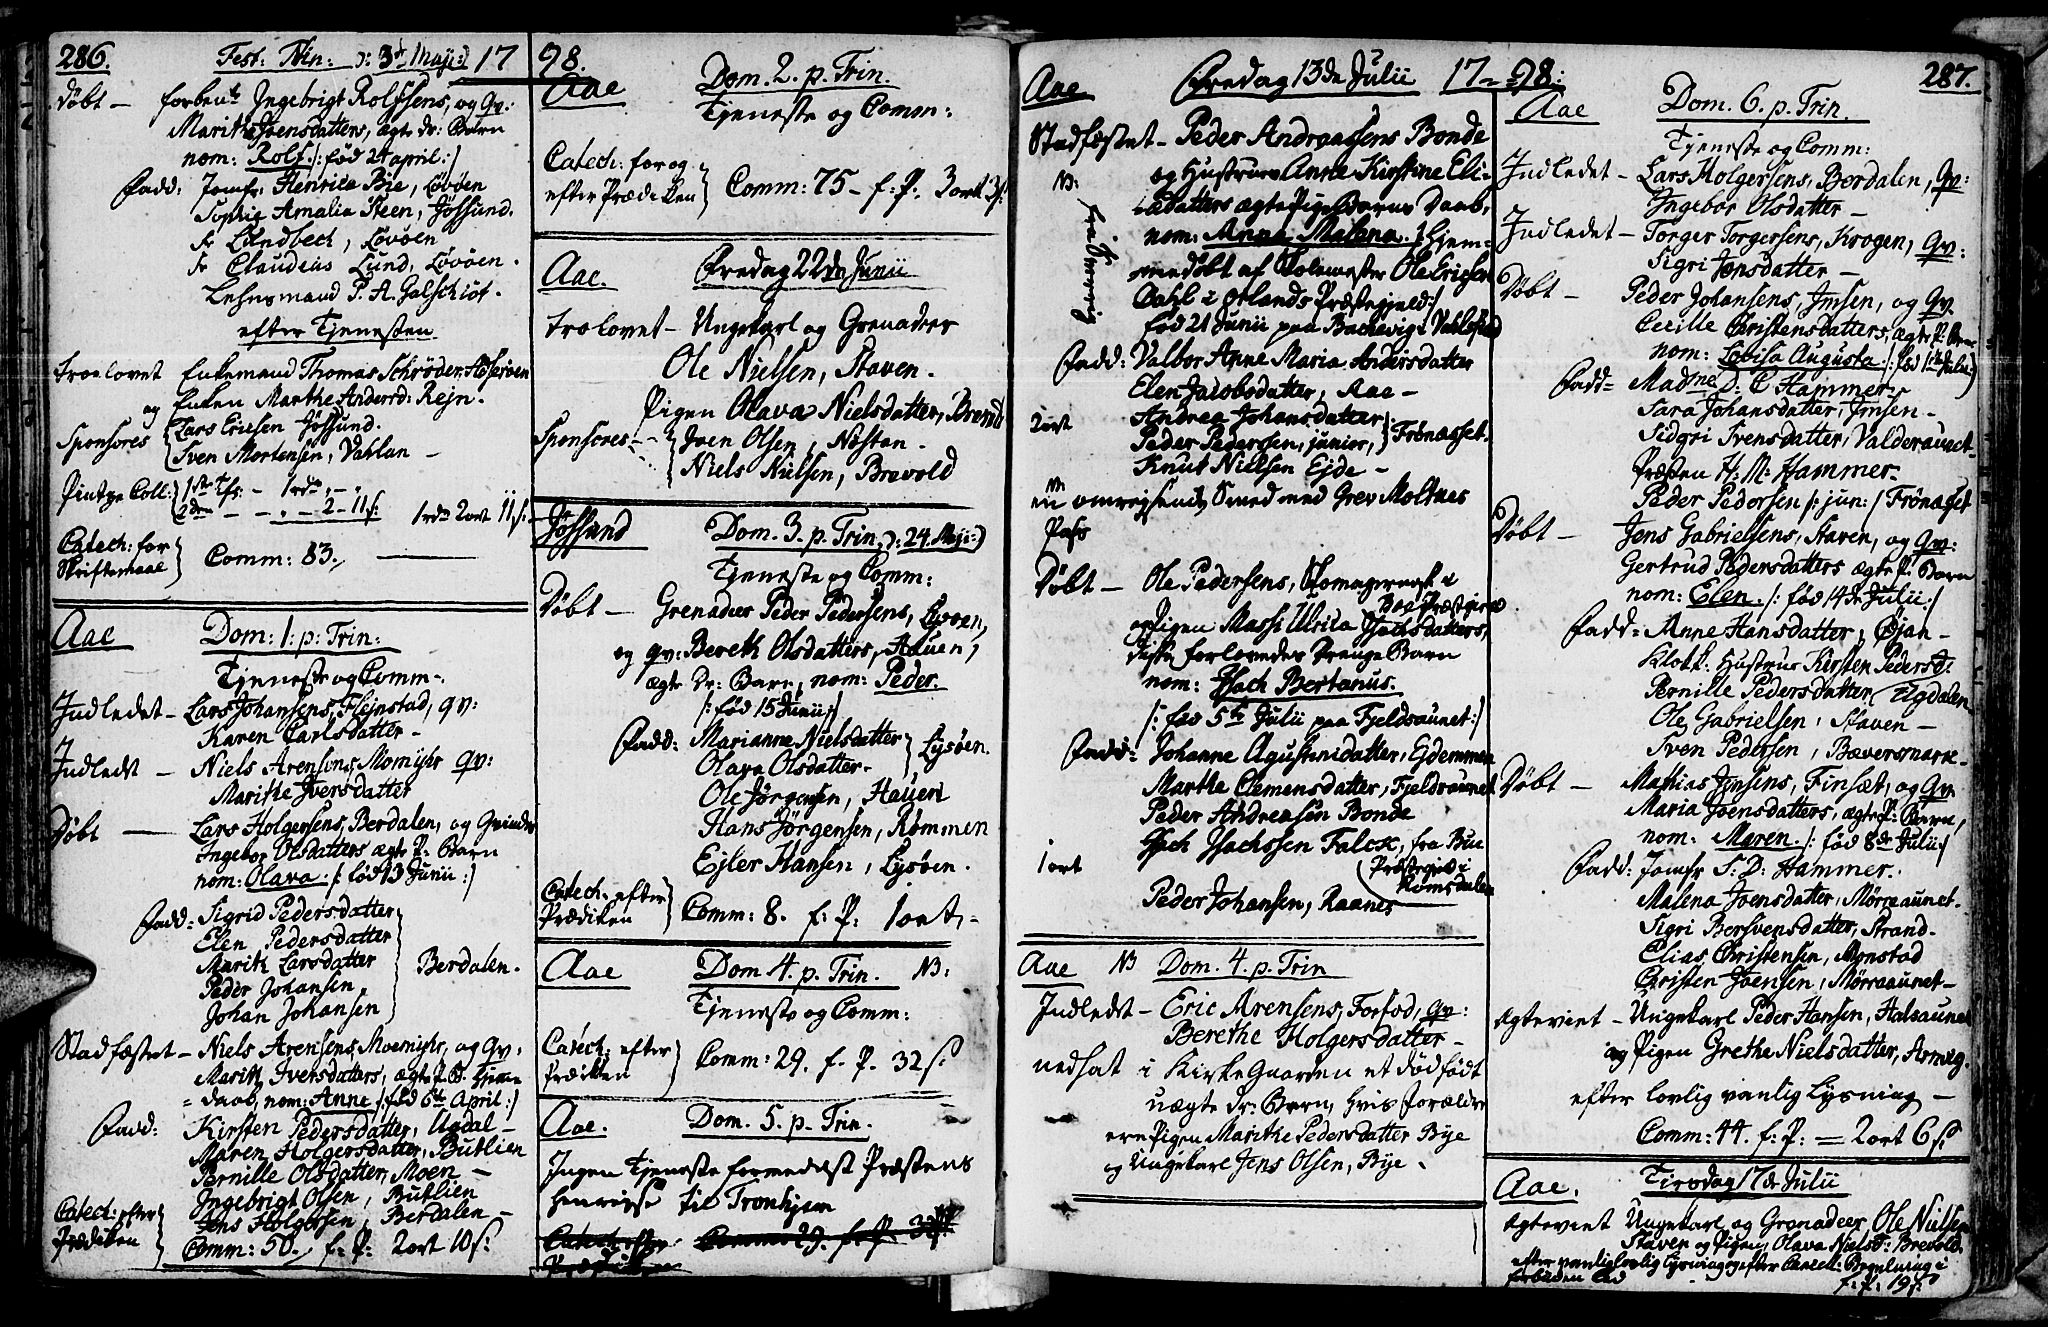 286.
Fest: Trin: ɔ: 3de Maji:) 1798.
Døbt – forbente Ingebrigt Rolfsens, og Qv:
Marithe Joensdatters, ægte Dr: Barn
nom: Rolf. /: fød 24 april :/
Fadd: Jomfr: Henrica Bie, Løvøen
Sophie Amalia Steen, Jøssund.
Sr Lundbech, Løvøen
Sr Claudius Lund, Løvøen.
Lehnsmand P. A. Galschiøt.
efter Tjenesten
Troelovet Enkemand Thomas Schrøder
og Enken Marthe Andersd: Rejn.
Sponsores Lars Ericsen Jøssund.
Sven Mortensen, Vahlan –
1rd 2ort 11 s:
Catech: for
Skriftemaal
Comm: 83.
Aae Dom: 1. p: Trin:
Tjeneste og Comm–.
Indledet – Lars Johansens, Flejnstad, qv:
Karen Carlsdatter –
Indledt – Niels Arensens, Momyhr qv:
Marithe Iversdatter
Døbt – Lars Holgersens, Berdalen, og Qvinde
Ingebor Olsdatters ægte P: Barn
nom: Olava. /: fød 13 Junii :/
Fadd: Sigrid Pedersdatter
Elen Pedersdatter
Marith Larsdatter
Peder Johansen
Johan Johansen
Berdalen.
Stadfæstet – Niels Arensens, Moemyhr, og Qv:
Marith Iversdatters, ægte P. B. Hjemme
=daab, nom: Anne /: fød 6te April :/
Fadd: Kirsten Pedersdatter, Ugdal –
Maren Holgersdatter, Butlien
Pernille Olsdatter, Moen –
Ingebrigt Olsen, Butlien
Jens Holgersen, Berdalen –
Catech: efter
Prædiken
Comm: 50. f: P: 2ort 10 s:
Aae Dom. 2. p. Trin.
Tjeneste og Comm:
Catech: for og
efter Prædiken
Comm: 75 – f: P. 3 ort 3 s:
Aae. Fredag 22de Junii
Trolovet – Ungekarl og Grenadeer
Ole Nielsen, Staven.
Pigen Olava Nielsdatter, Brevold
Sponsores – Joen Olsen, Nestan.
Niels Nielsen, Brevold
Jøssund Dom. 3. p. Trin. ɔ: 24. Maji:)
Tjeneste og Comm:
Døbt – Grenadeer Peder Pedersens, Lysøen,
og qv: Bereth Olsdatters, Hauen,
ægte Dr: Barn, nom: Peder.
/: fød 15 Junii :/
Fadd: Marianne Nielsdatter
Olava Olsdatter –
Lysøen.
Ole Jørgensen, Hauen
Hans Jørgensen, Rømmen
Ejler Hansen, Lysøen.
Catech. efter
Prædiken
Comm: 8. f: P: 1 ort, –
Aae Dom. 4. p. Trin. NB:
Tjeneste og Comm:
Catech: efter
Prædiken
Comm: 29. f. P. 32 s:
Aae. Dom. 5. p. Trin.
Ingen Tjeneste formedelst Præstens
henrejse til Tronhjem
Catech: efter Comm: 29. f. P. 32 s:
Prædiken
Aae Fredag 13de Julii 17–98: 287.
Stadfæstet – Peder Andreassens Bonde
og Hustrues Anne Kirstine Eli-
=datters ægte Pige Barns Daab,
nom: Anna Malena. /: hjem-
medøbt af Skolemester Ole Ericsen
Dahl i Ørlands Præstegjeld :/
fød 21 Junii paa Bachevig i Vahlsfiord
Fadd: Valbor Anne Maria Andersdatter
Elen Jacobsdatter, Aae –
Andrea Johansdatter
Peder Pedersen, junior,
Frønesset.
Knut Nielsen Ejde –
2ort
en omrejsende Smed med Grev Moltkes
Pass
Døbt – Ole Pedersens, Skomagersvend i
og Pigen Massi Ulrica Isachsdatters,
disse forlovedes Drenge Barn
nom: Isach Bertanus.
/: fød 5te Julii paa Fjeldsaunet :/
Fadd: Johanne Agustinidatter, Ejdemmen
Marthe Clemensdatter, Fjeldsaunet
Peder Andreasen Bonde
Isach Isachssen Falck, fra Bue
Præstegield i
Romsdalen
1ort
Peder Johansen, Raanes
Aae NB Dom. 4. p. Trin
Indledt – Eric Arensens, Forsød, qv:
Berethe Holgersdatter –
nedsat i Kirke Gaarden et dødfødt
uægte Dr: Barn, hvis Forældre
ere Pigen Marithe Pedersdatter Bye
og Ungekarl Jens Olsen, Bye.
Aae Dom. 6. p. Trin.
Tjeneste og Comm:
Indledet – Lars Holgersens, Berdalen, qv:
Ingebor Olsdatter –
Indledet – Torger Torgersens, Krogen, qv:
Sigri Jonsdatter –
Døbt – Peder Johansens, Imsen, og Qv.
Cecille Christensdatters, ægte P: Barn
nom: Lovisa Augusta /: fød 1te Julii :/
Fadd= Madme D: C Hammer
Sara Johansdatter, Imsen –
Sidgri Svensdatter, Valderaunet
Præsten H: M: Hammer –
Peder Pedersen /: jun: / Frønesset
Døbt – Jens Gabrielsens, Staven, og Qv:
Gertrud Pedersdatters ægte P: Barn
nom: Elen. /: fød 14de Julii :/
Fadd= Anne Hansdatter, Øjan –
Klokk: Hustrue Kirsten Pedersd:
Pernille Pedersdatter
Ugdalen
Ole Gabrielsen, Staven –
Sven Pedersen, Bæversmark –
Døbt – Mathias Jensens, Finsæt, og Qv
Maria Joensdatters, ægte P: Barn,
nom: Maren /: fød 8de Julii :/
Fadd: Jomfr S: D: Hammer.
Malena Joensdatter, Mørreaunet.
Sigri Bersvensdatter, Strand –
Elias Christensen, Monstad
Christen Joensen, Mørreaunet –
Ægteviet – Ungekarl Peder Hansen, Halsaunet
og Pigen Grethe Nielsdatter, Arnvig.
efter lovlig vanlig Lysning –
Comm: 44. f: P: = 2ort 6 s:
Aae. Tirsdag 17de Julii
Ægteviet Ungekarl og Grenadeer Ole Nielsen
Staven og Pigen Olava Nielsd: Brevold.
f: P: 19 s: